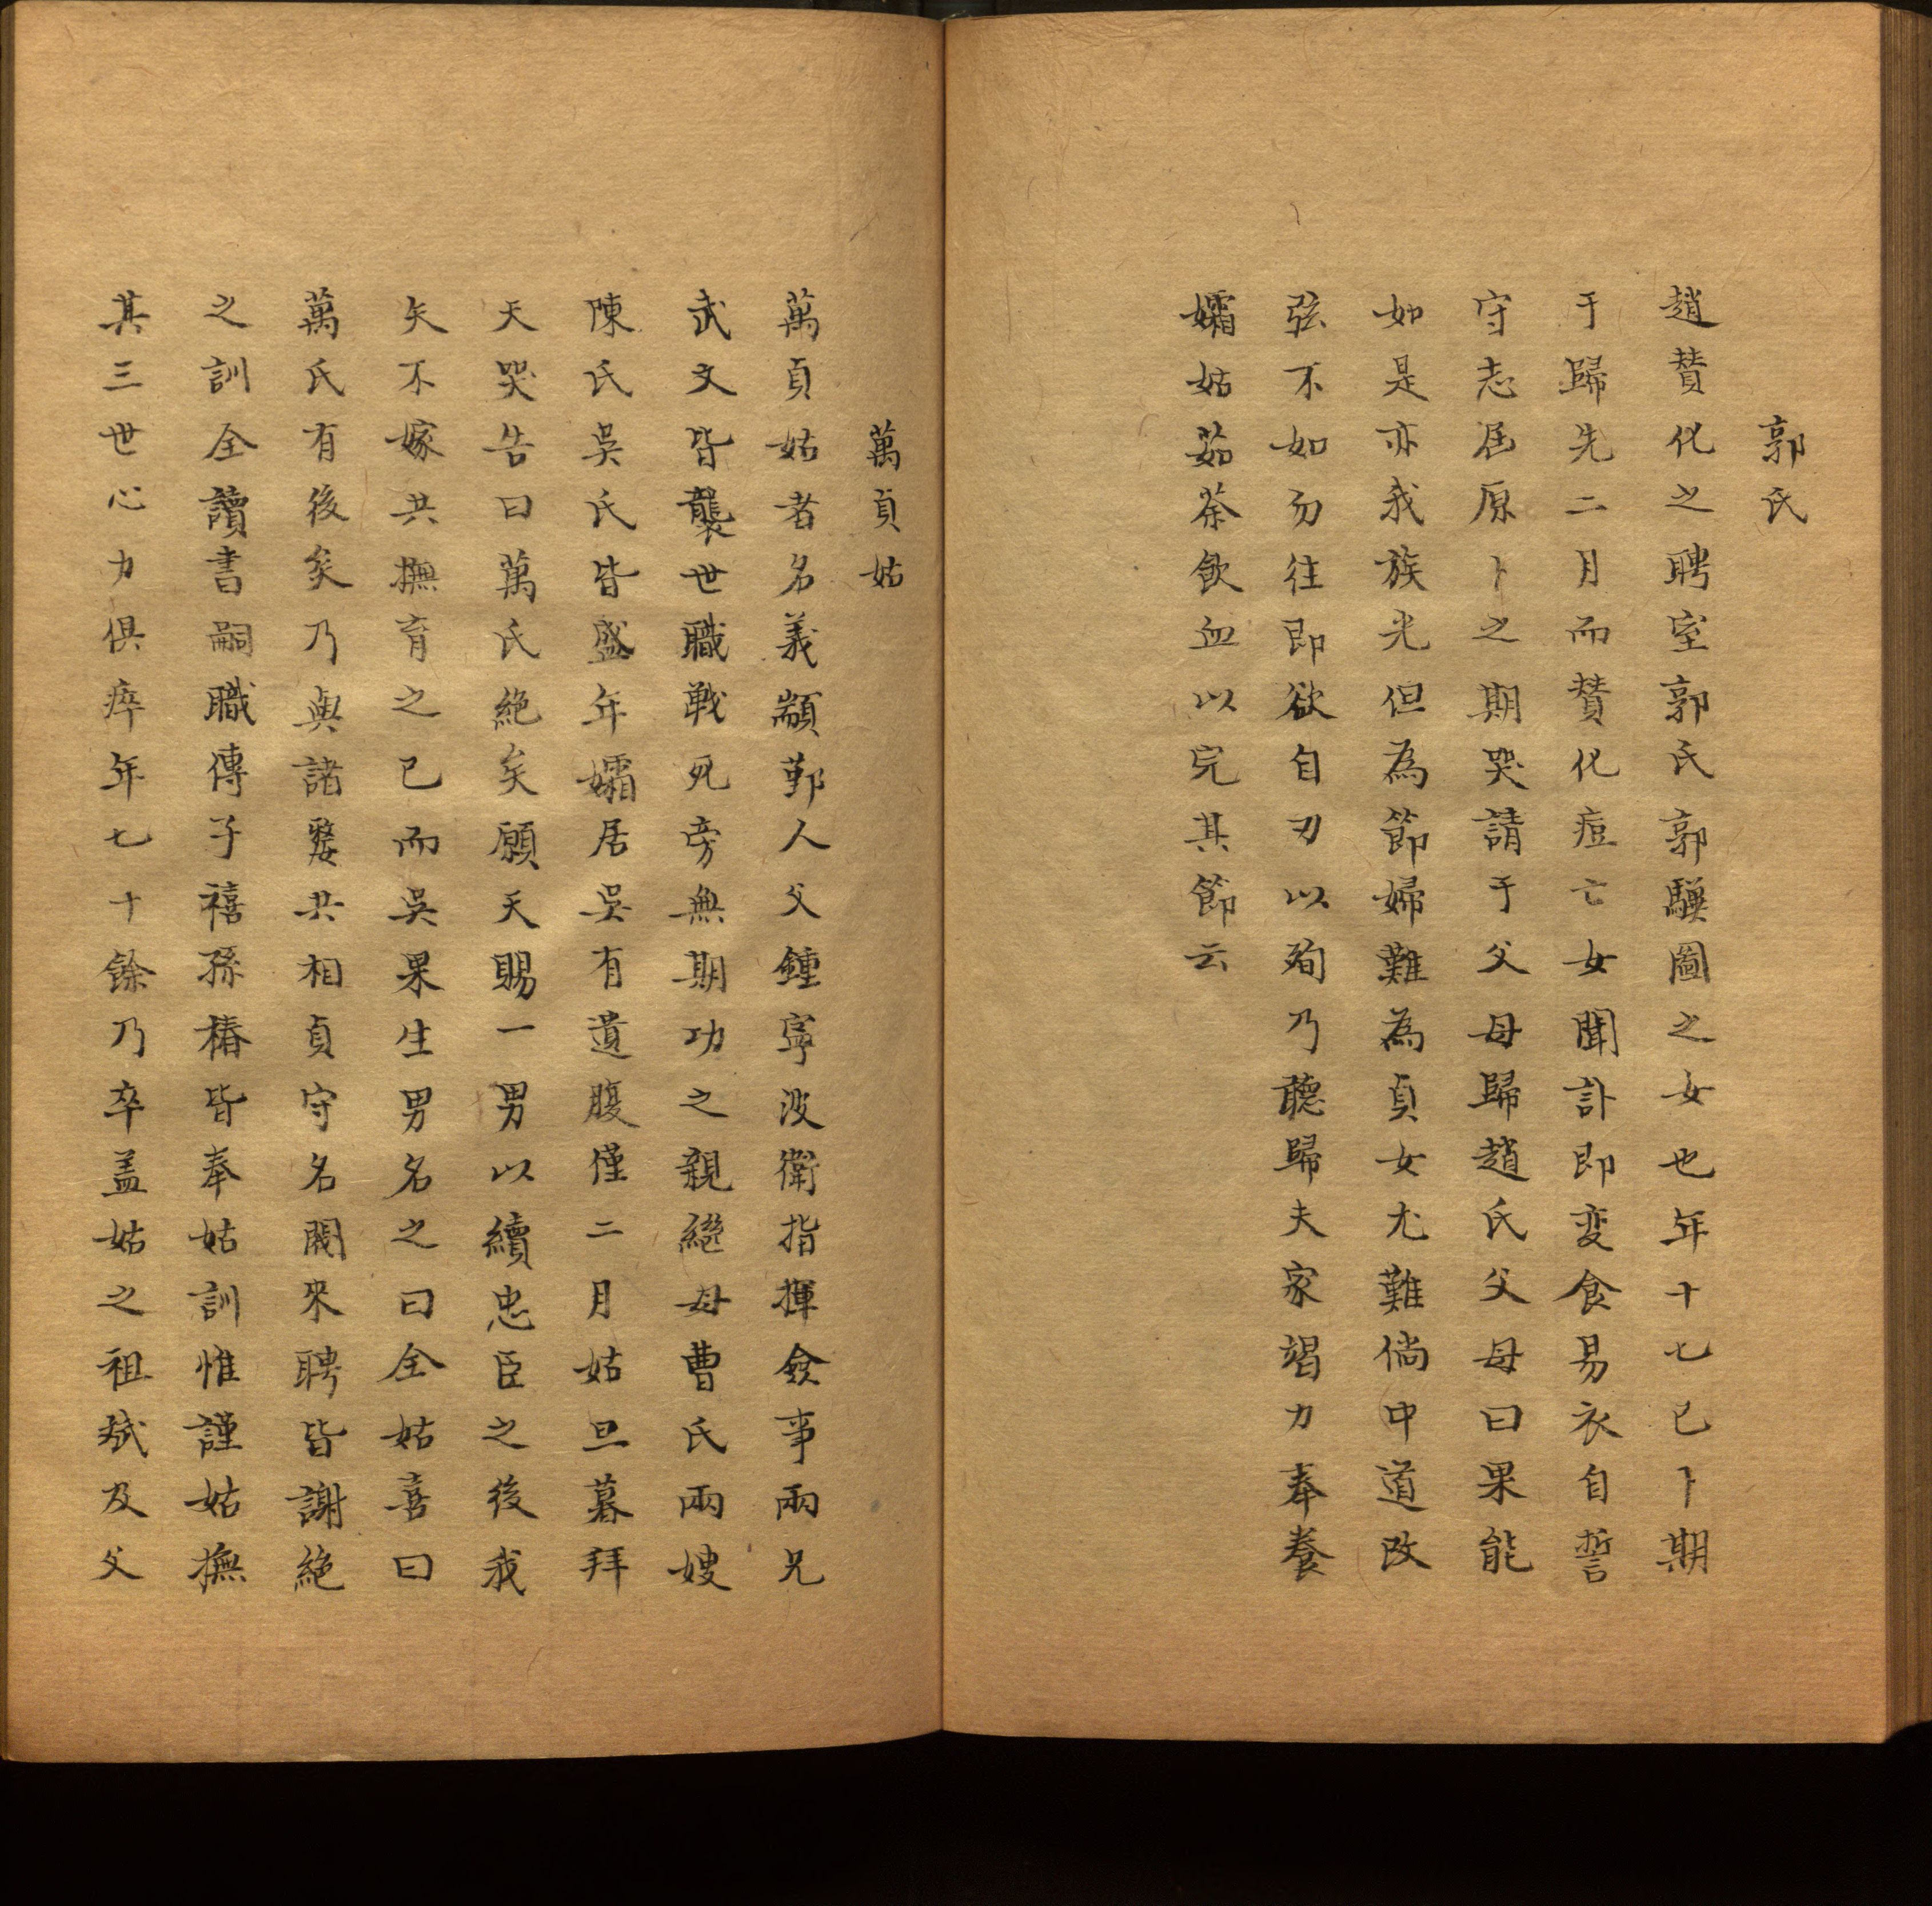 郭氏
趙賛化之聘室郭氏郭驥圖之女也年十七已卜期
于歸先二月而賛化痘亡女聞訃即変食易衣自誓
守志屆原卜之期哭請于父母歸趙氏父母曰果能
如是亦我族光但為節婦難為貞女尤難倘中道改
弦不如勿往即欲自刃以殉乃聽歸夫家竭力奉養
孀姑茹荼飲血以完其節云
萬貞姑
萬貞姑者名義顓鄞人父鍾寧波衛指揮僉事兩兄
武文皆襲世職戰死旁無期功之親繼母曹氏兩嫂
陳氏吳氏皆盛年孀居吳有遺腹僅二月姑旦暮拜
天哭告曰萬氏絶矣願天賜一男以續忠臣之後我
矢不嫁共撫育之已而吳果生男名之曰全姑喜曰
萬氏有後矣乃與諸嫠共相貞守名閥來聘皆謝絶
之訓全讀書嗣職傳子禧孫椿皆奉姑訓惟謹姑撫
其三世心力俱瘁年七十餘乃卒盖姑之祖斌及父